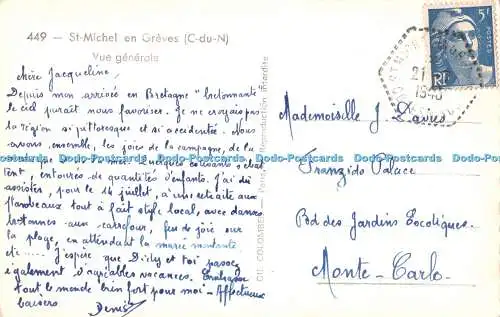 449 - St-Michel en Grèves (C-du-N)
Vue générale
chère Jacqueline,
Depuis mon arrivée en Bretagne "bretonnante
le ciel paraît nous favoriser. Je ne croyais pas
la région si pittoresque et si accidentée. Nous
avons, ensemble, les joies de la campagne, de la
quelques cousins, s'ébat
tent, entourés de quantités d'enfants. J'ai dû
assister, pour le 14 juillet, à une retraite aux
flambeaux tout à fait style local, avec danses
bretonnes aux carrefour, feu de joie sur
la plage, en attendant la marée montante,
etc..... J'espère que Dily et toi passez
également d'agréables vacances. Embrasse
tout le monde bien fort pour moi - Affectueux
baisers
Denis
Reproduction interdite
CIL COLOMBEL
5F
POSTES
RF
21
Mademoiselle J. Davies
Franzido Palace
Bd des Jardins Exotiques.
Monte-Carlo
Dodo-Postcards.com Dodo-Postcards.com Dodo-Postcards.com Dodo-Postcards.com